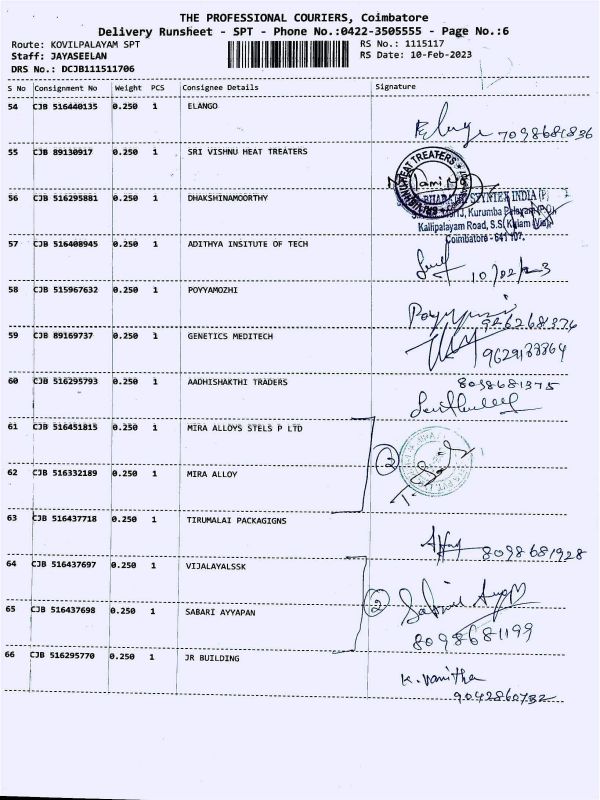 THE PROFESSIONAL COURIERS, Coimbatore
Delivery Runsheet - SPT - Phone No.:0422-3505555 - Page No.:6
Route: KOVILPALAYAM SPT
Staff: JAYASEELAN
DRS No.: DCJB111511706
RS No.: 1115117
RS Date: 10-Feb-2023
S No Consignment No Weight PCS Consignee Details Signature
54 CJB 516440135 0.250 1 ELANGO
7098681836
55 CJB 89130917 0.250 1 SRI VISHNU HEAT TREATERS
HEAT TREATERS
56 CJB 516295881 0.250 1 DHAKSHINAMOORTHY
INDIA (P)
Kurumba Palayam (PO),
Kallipalayam Road, S.S. Kulam (Via),
Coimbatore - 641 107.
57 CJB 516408945 0.250 1 ADITHYA INSITUTE OF TECH
10/02/23
58 CJB 515967632 0.250 1 POYYAMOZHI
9262681376
59 CJB 89169737 0.250 1 GENETICS MEDITECH
9629133864
60 CJB 516295793 0.250 1 AADHISHAKTHI TRADERS
8098681375
61 CJB 516451815 0.250 1 MIRA ALLOYS STELS P LTD
2
62 CJB 516332189 0.250 1 MIRA ALLOY
63 CJB 516437718 0.250 1 TIRUMALAI PACKAGIGNS
8098681928
64 CJB 516437697 0.250 1 VIJALAYALSSK
2
65 CJB 516437698 0.250 1 SABARI AYYAPAN
8098681199
66 CJB 516295770 0.250 1 JR BUILDING
K. Vanitha
9042860732